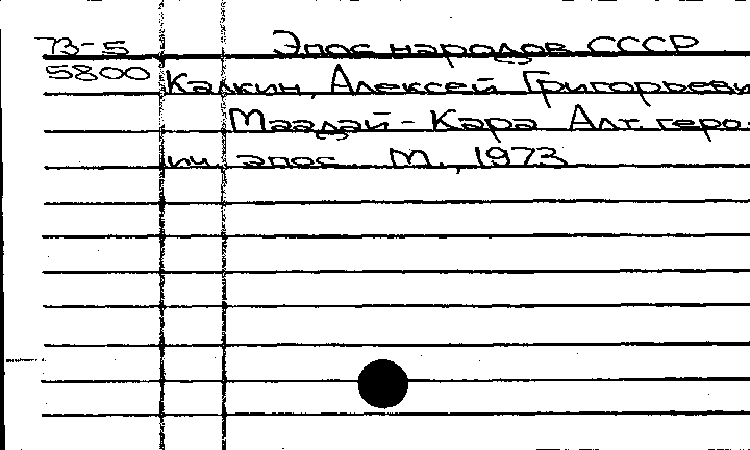 73-5 Эпос народов СССР
5800 Калкин, Алексей Григорьеви
Маадай-Кара Алт. геро-
ич. эпос. М., 1973